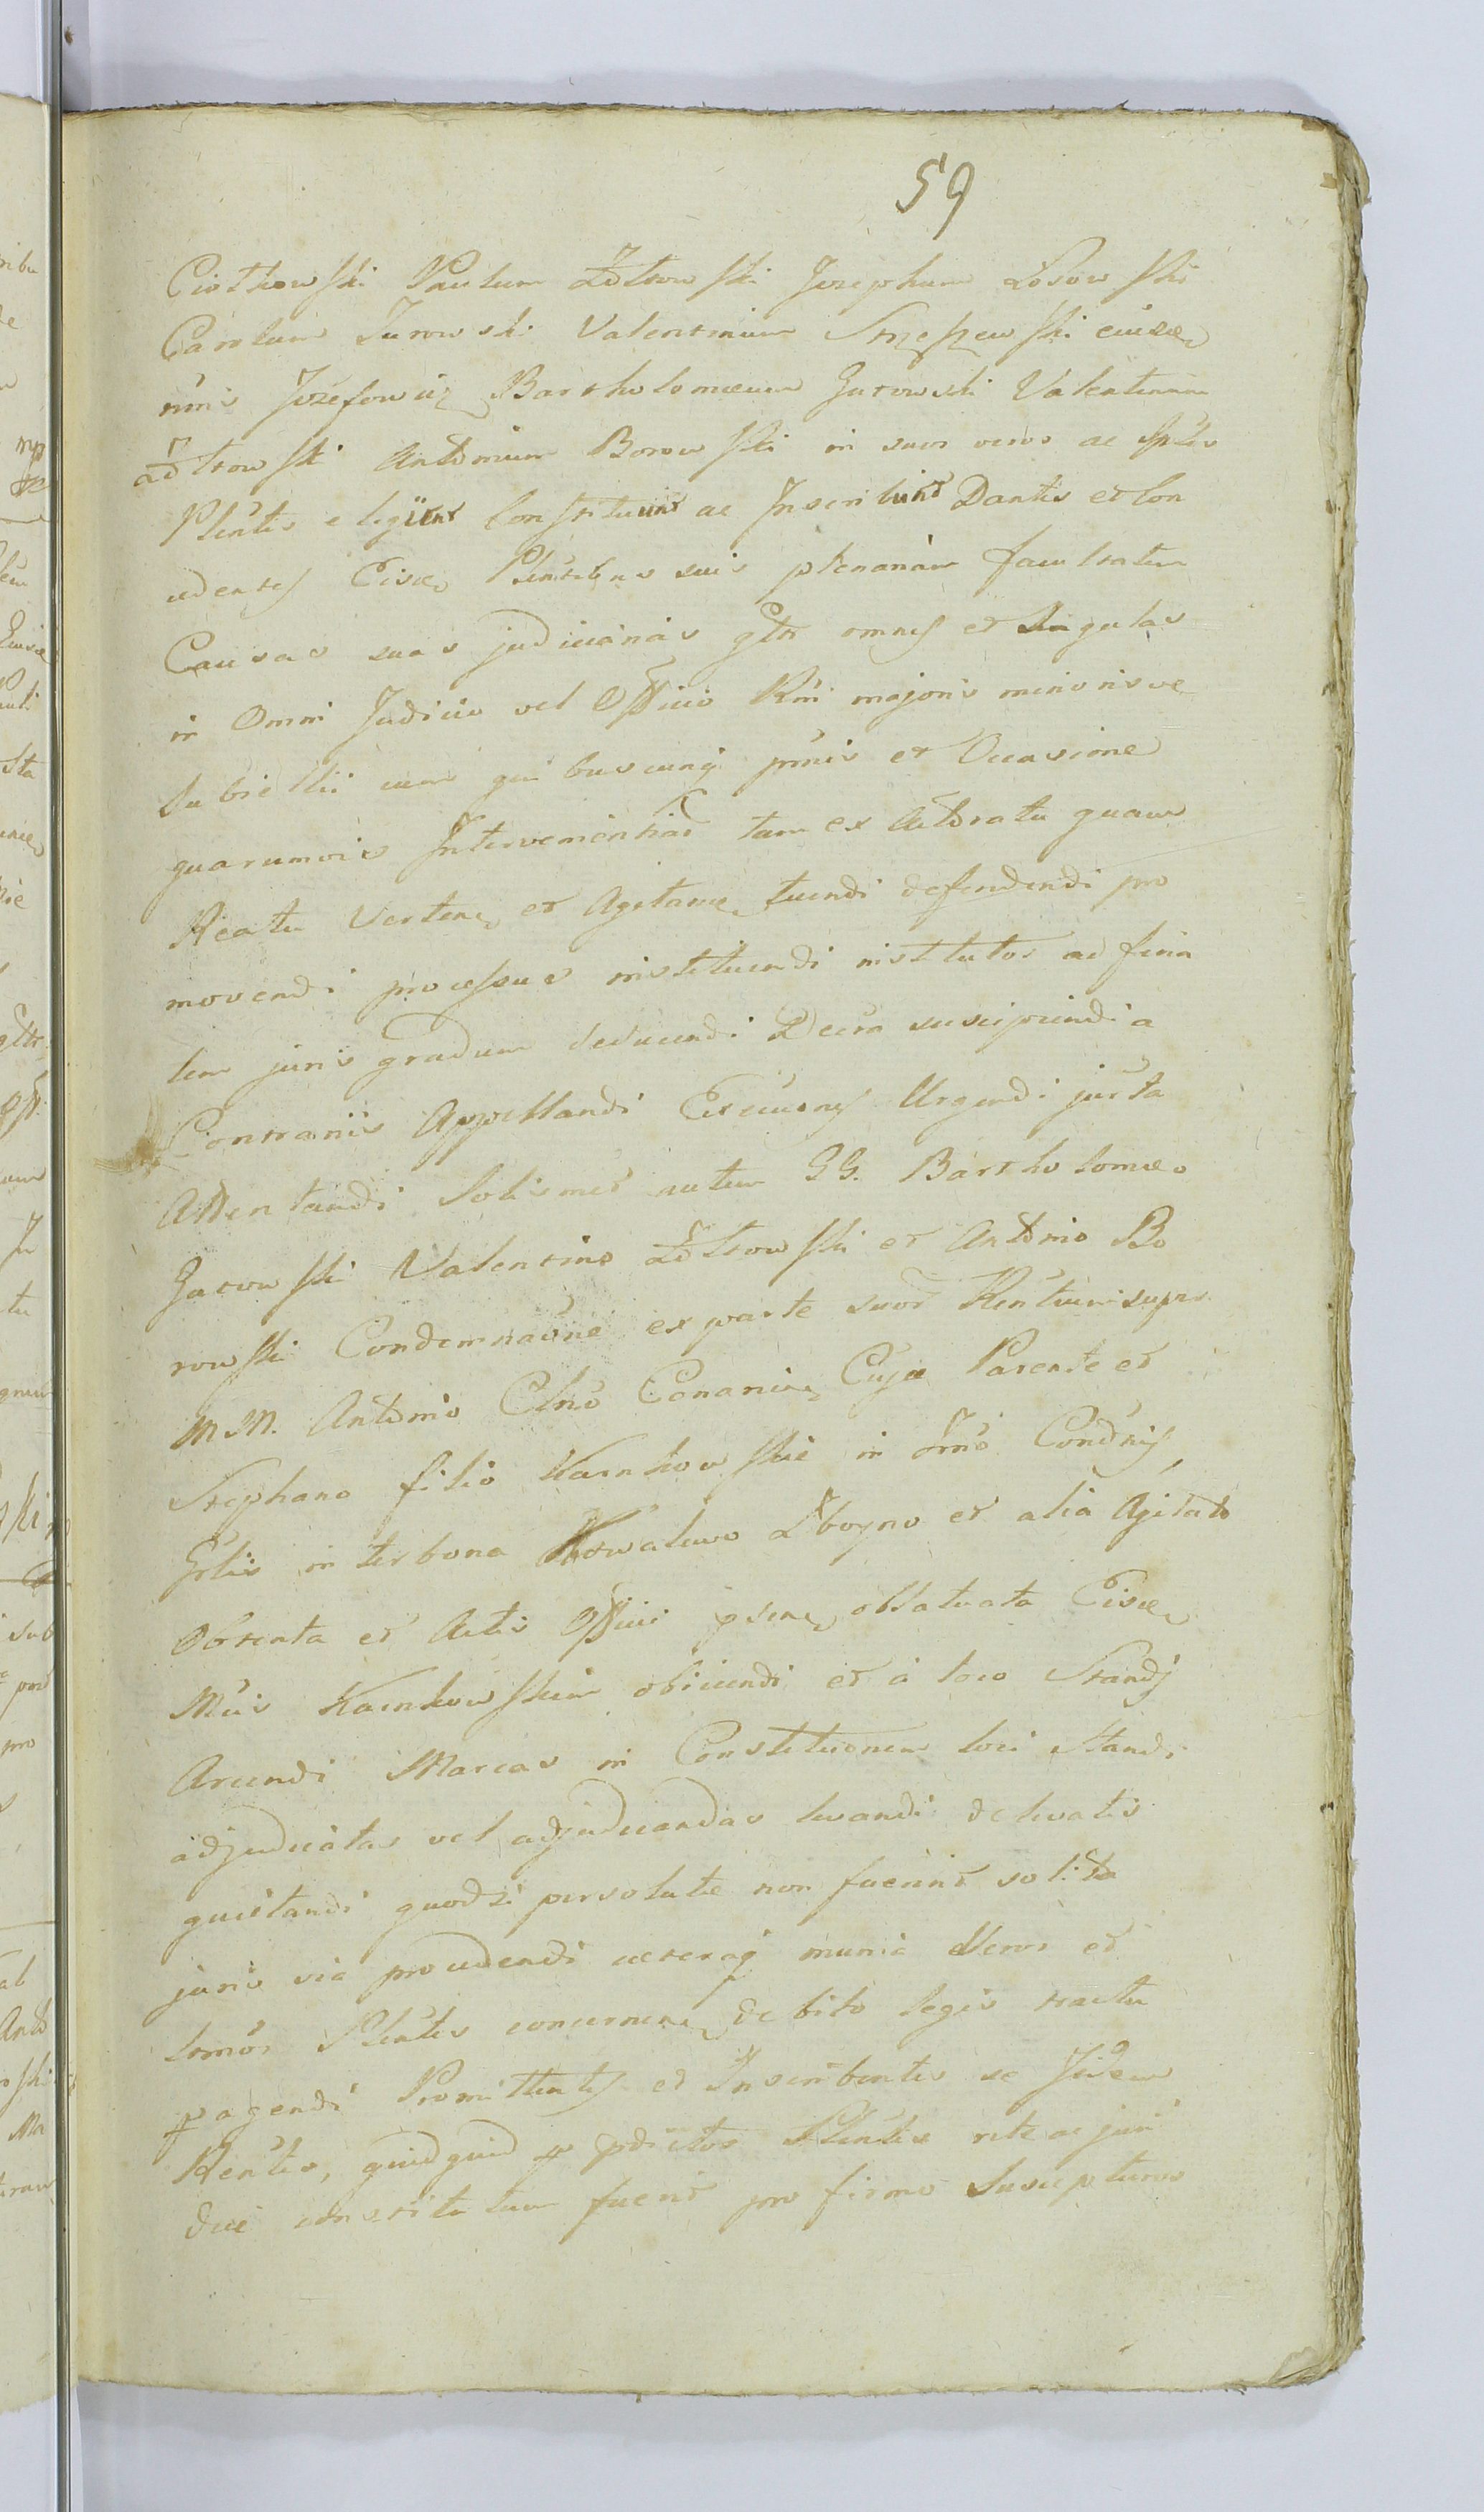 59
Ciotkowski Paulum Żółtowski Josephum Łosowski
Carolum Żurowski Valentinum Strzeszewski
Jozefowicz Bartholomæum Gutowski Valentinum
Żółtowski Antonium Borowski in suos veros ac
Plentes eligunt Constituunt ac Inscribunt Dantes et Con
cedentes Eisd Plentibus suis plenariam facultatem
Causas suas judiciarias gltr omnes et singulas
in Omni Judicio vel Officio Rni majoris minorisve
Subsellii cum quibuscunq prnis et Occasione
quarumvis Interveniend tam ex Actoratu quam
Reatu Verten et Agitan tuendi defendendi pro
movendi processus instituendi institutos ad fina
lem juris gradum deducendi Decra suscipiendi a
Contrariis Appellandi Execuones Urgendi jurta
Attentandi Solismet autem GG. Bartholomæo
Gutowski Valentino Żółtowski et Antonio Bo
rowski Condemnaone ex parte suor Rentium supr
MM. Antonio Clno Cananie Cuja Parente et
Stephano filio Karnkowskie in Trno Condnis
Grlis inter bona Kowalewo et alia Agitato
Obtenta et Actis Officii psen oblatuata Eisd
Mcis Karnkowskim obiiciendi et a loco Standi
Arcendi Marcas in Constituonem loci standi
adjudicatas vel adjudicandas levandi de levatis
quietandi quodsi persolutæ non fuerint solita
juris via procedendi cæteraq munia Veros et
Plentes concernen debito legis tractu
pagendi Promittentes et Inscribentes se Iidem
Rentes, quidquid p pdictos Plentes rite ac juri
dice constitutum fuerit pro firmo suscepturos